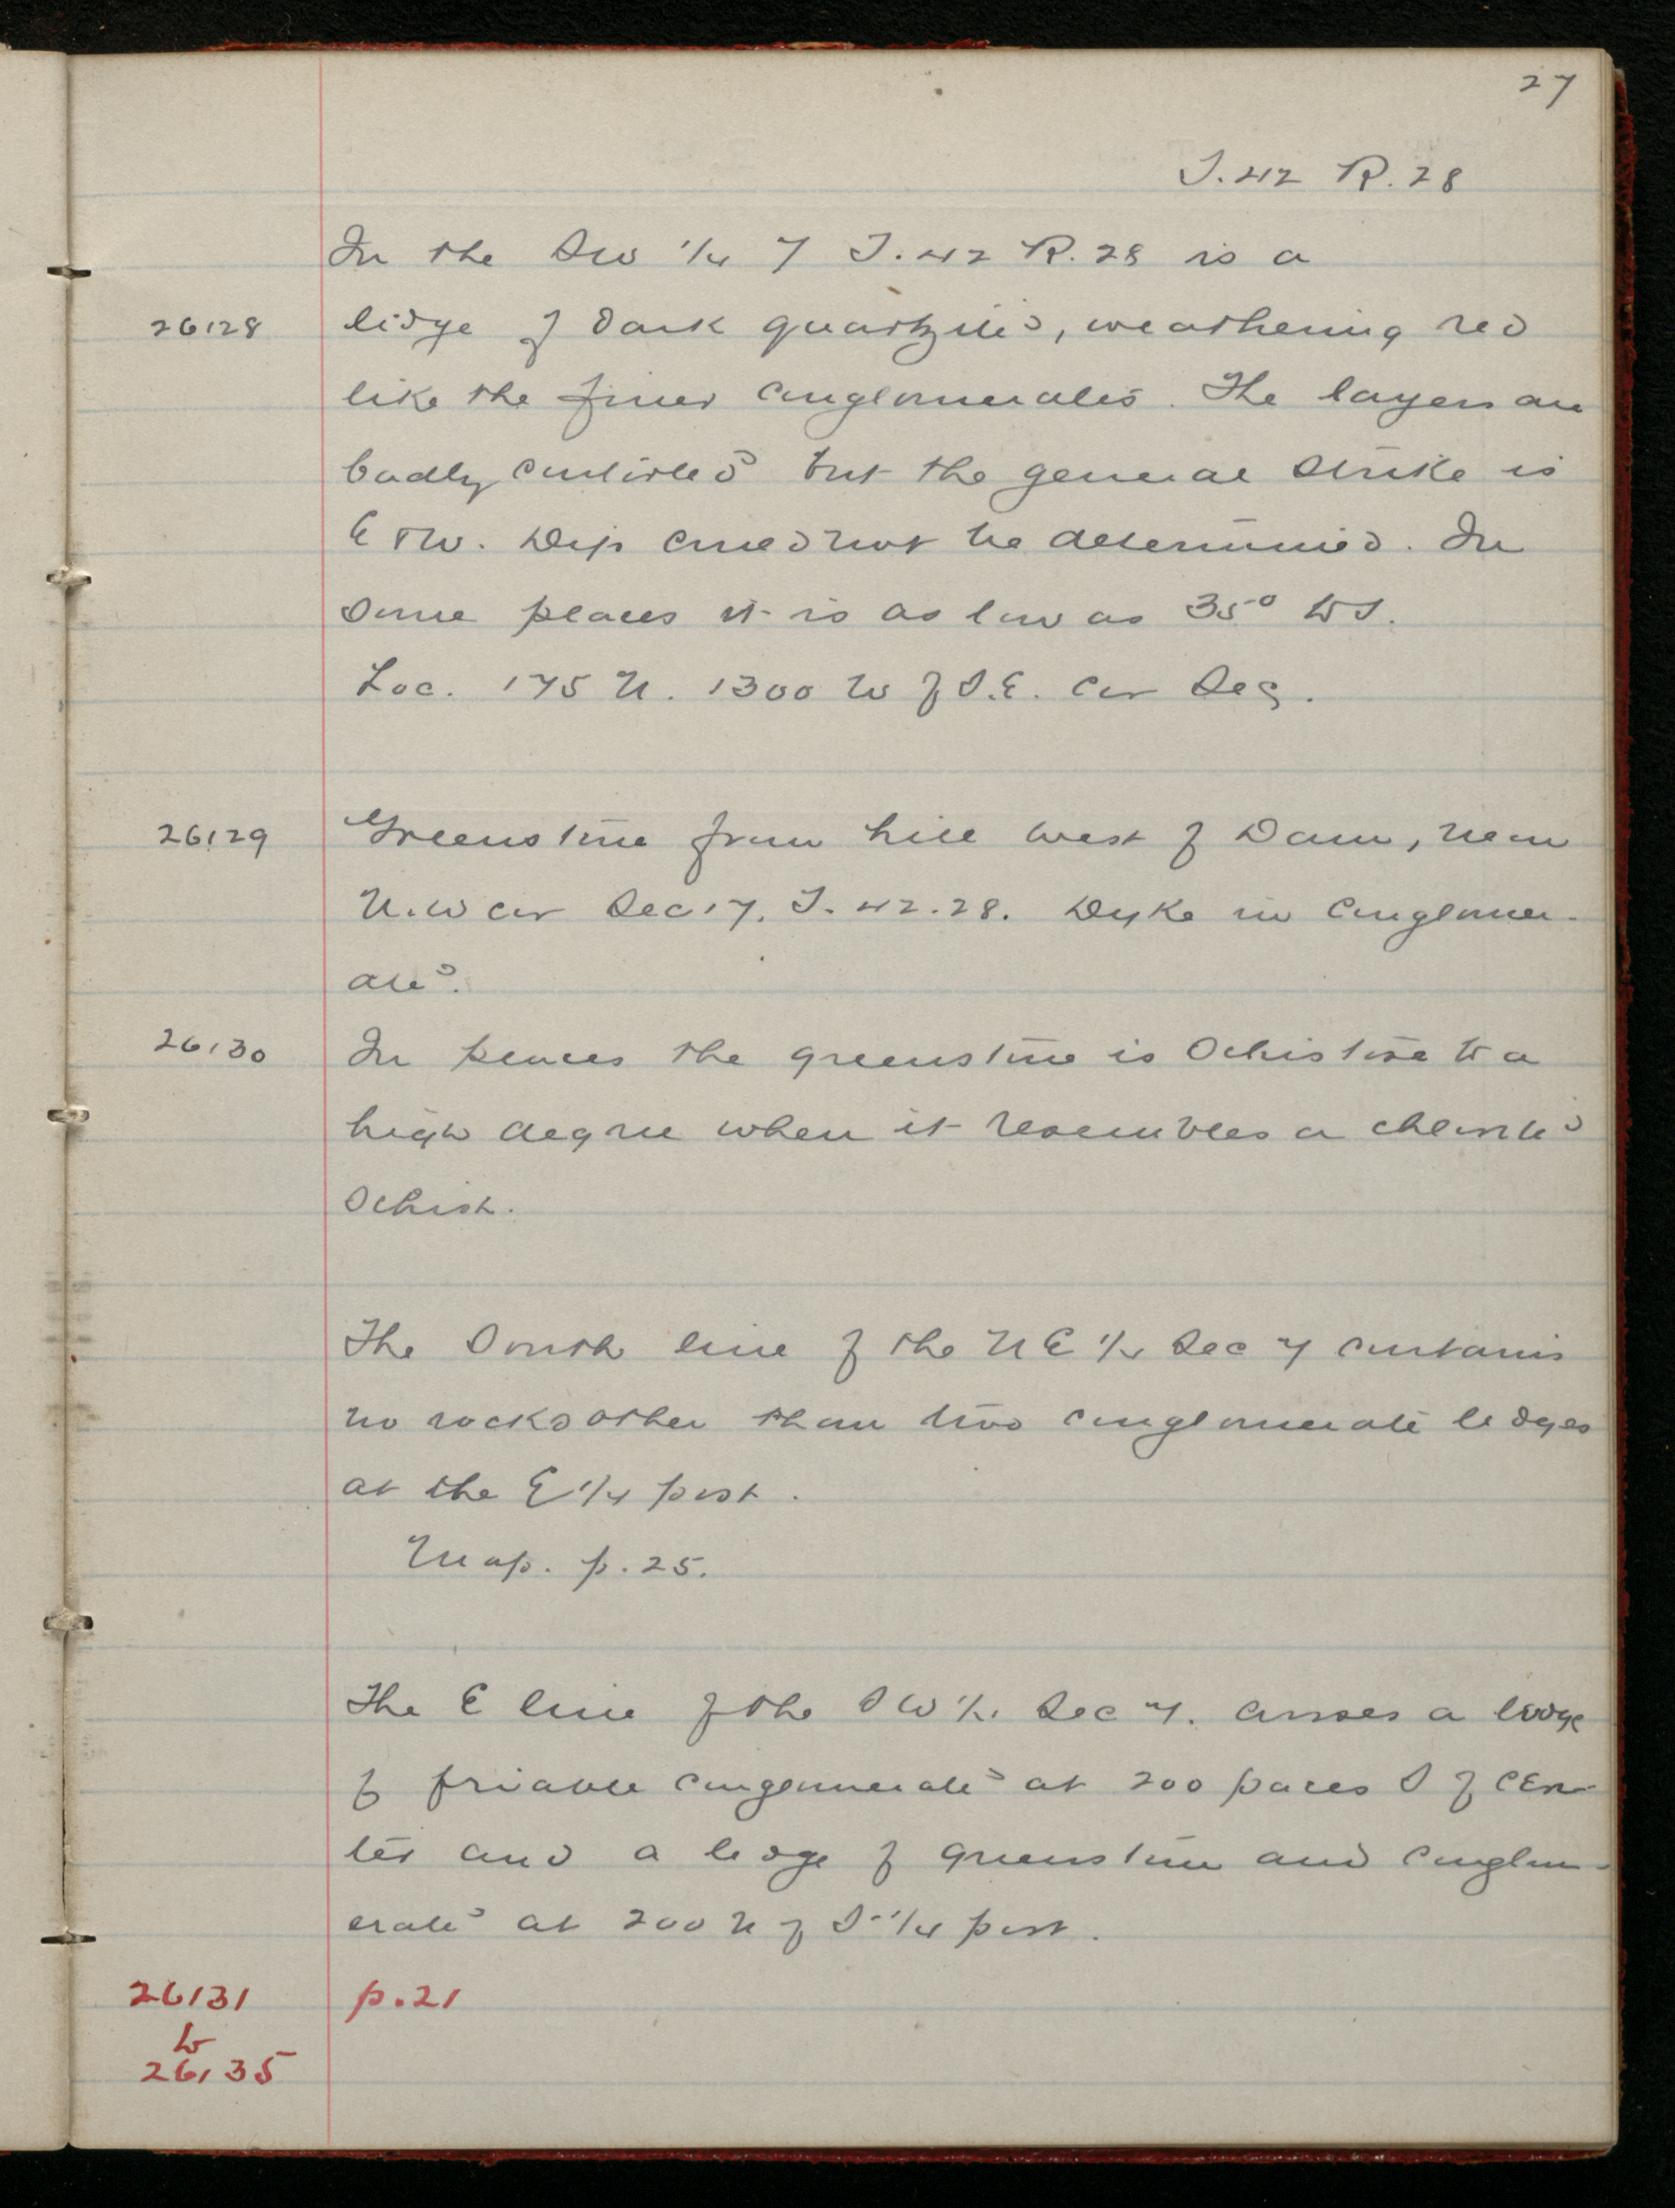 27
T. 42 R. 28
In the SW 1/4 7 T. 42 R. 28 is a
26128 ledge of dark quartzite, weathering red
like the finer conglomerates. The layers are
badly contorted but the general strike is
E & W. Dip could not be determined. In
some places it is as low as 35° to S.
Loc. 175 N. 1300 W of S.E. cor Sec
26129 Greenstone from hill west of Dam, near
N.W cor Sec 17. T. 42.28. Dyke in conglomer-
ate.
26130 In places the greenstone is schistose to a
high degree when it resembles a chlorite
schist.
The South line of the NE 1/4 Sec 7 contains
no rocks other than two conglomerate ledges
at the E 1/4 post.
Map. p. 25.
The E line of the SW 1/4 Sec 7. crosses a ledge
of friable conglomerate at 200 paces S of cen-
ter and a ledge of greenstone and conglom-
erate at 200 N of S 1/4 post.
26131 p. 21
to
26135